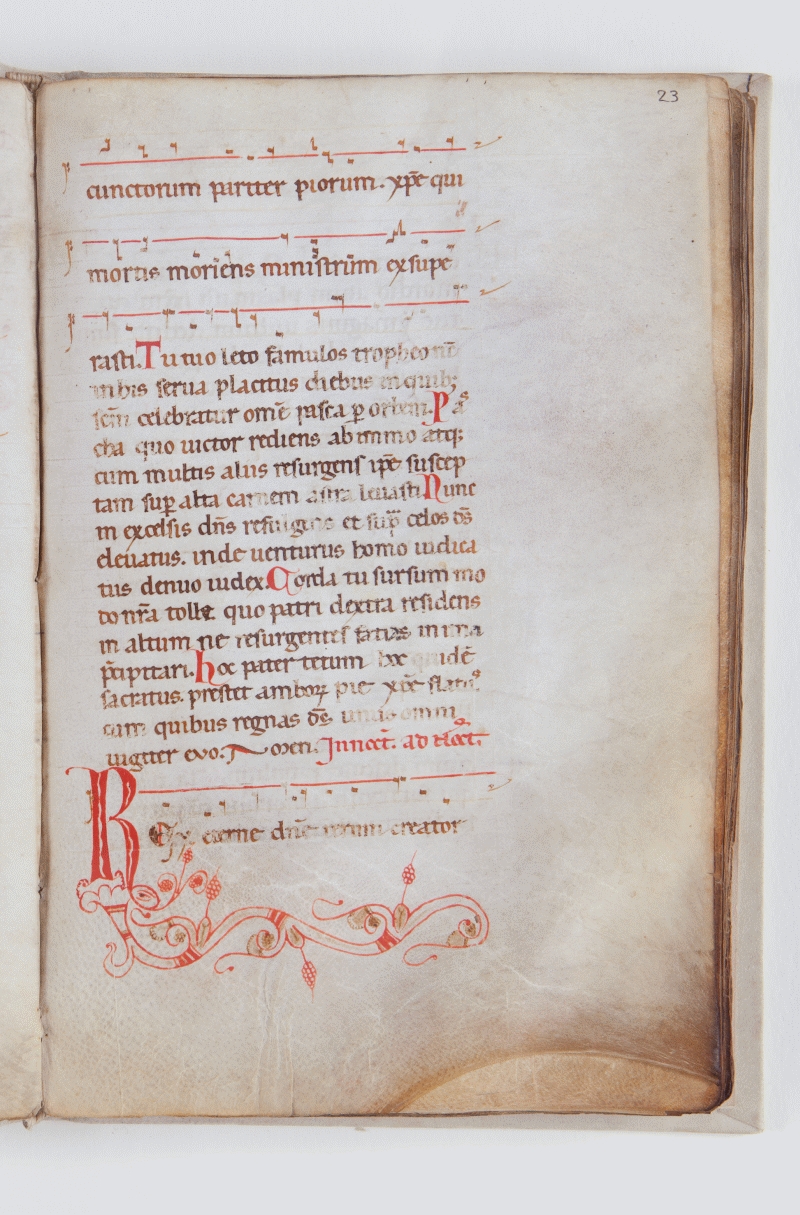 23
cunctorum pariter piorum. xp̄e qui
mortis moriens ministrum exsupe
rasti. Tu tuo leto famulos tropheo nc̄
in his serua placitus diebus in quib;
celebratur om̄e pasca ꝑ orbem. Pas
cha quo uictor rediens ab immo atq;
cum multis aliis resurgens ip̄e suscep
tam suꝑ alta carnem astra leuasti. Nunc
in excelsis dn̄s refulgens et sup̄ celos ds̄
eleuatus. inde uenturus homo iudica
tus denuo iudex. Corda tu sursum mo
do nr̄a tolle quo patri dextra residens
in altum ne resurgentes facias in ima
p̄cipitari. hoc pater tecum hoc quidē
sacratus. prestet amboꝝ pie xp̄e flatus
cum quibus regnas ds̄ unus omni
iugiter euo. Amen. In noct. ad noct.
REx eterne dn̄e rerum creator